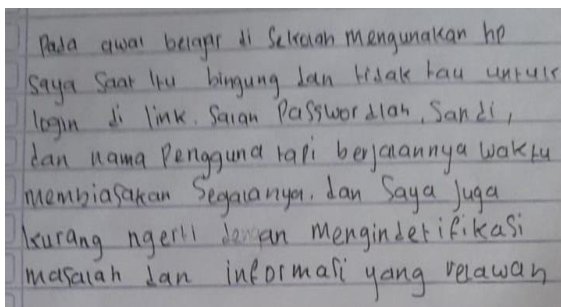 Pada awal belajar di Sekolah mengunakan hp
saya saat itu bingung dan tidak tau untuk
login di link. Salah Passwordlah, Sandi,
dan nama Pengguna tapi berjalannya waktu
membiasakan Segalanya. dan Saya juga
kurang ngerti dengan mengindetifikasi
masalah dan informasi yang relawan